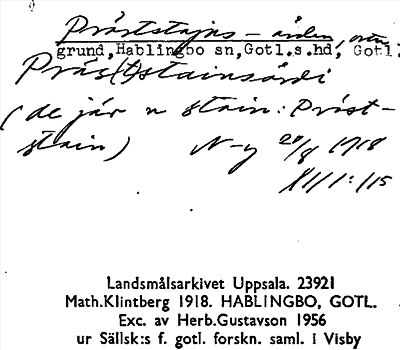 Präststajns – ården,
grund, Hablingbo sn, Gotl.s.hd, Gotl
Präs(t)stainsårdi
(de jär n stain: Präst-
stain) N–y 20/8 1918
Landsmålsarkivet Uppsala. 23921
Math.Klintberg 1918. HABLINGBO, GOTL.
Exc. av Herb.Gustavson 1956
ur Sällsk:s f. gotl. forskn. saml. i Visby